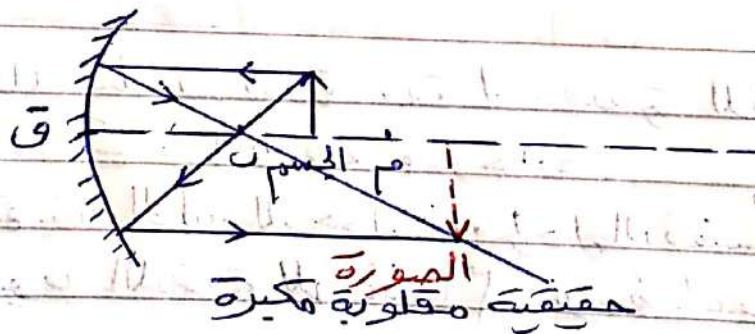 ق
م الجسم ب
الصورة
حقيقية مقلوبة مكبرة